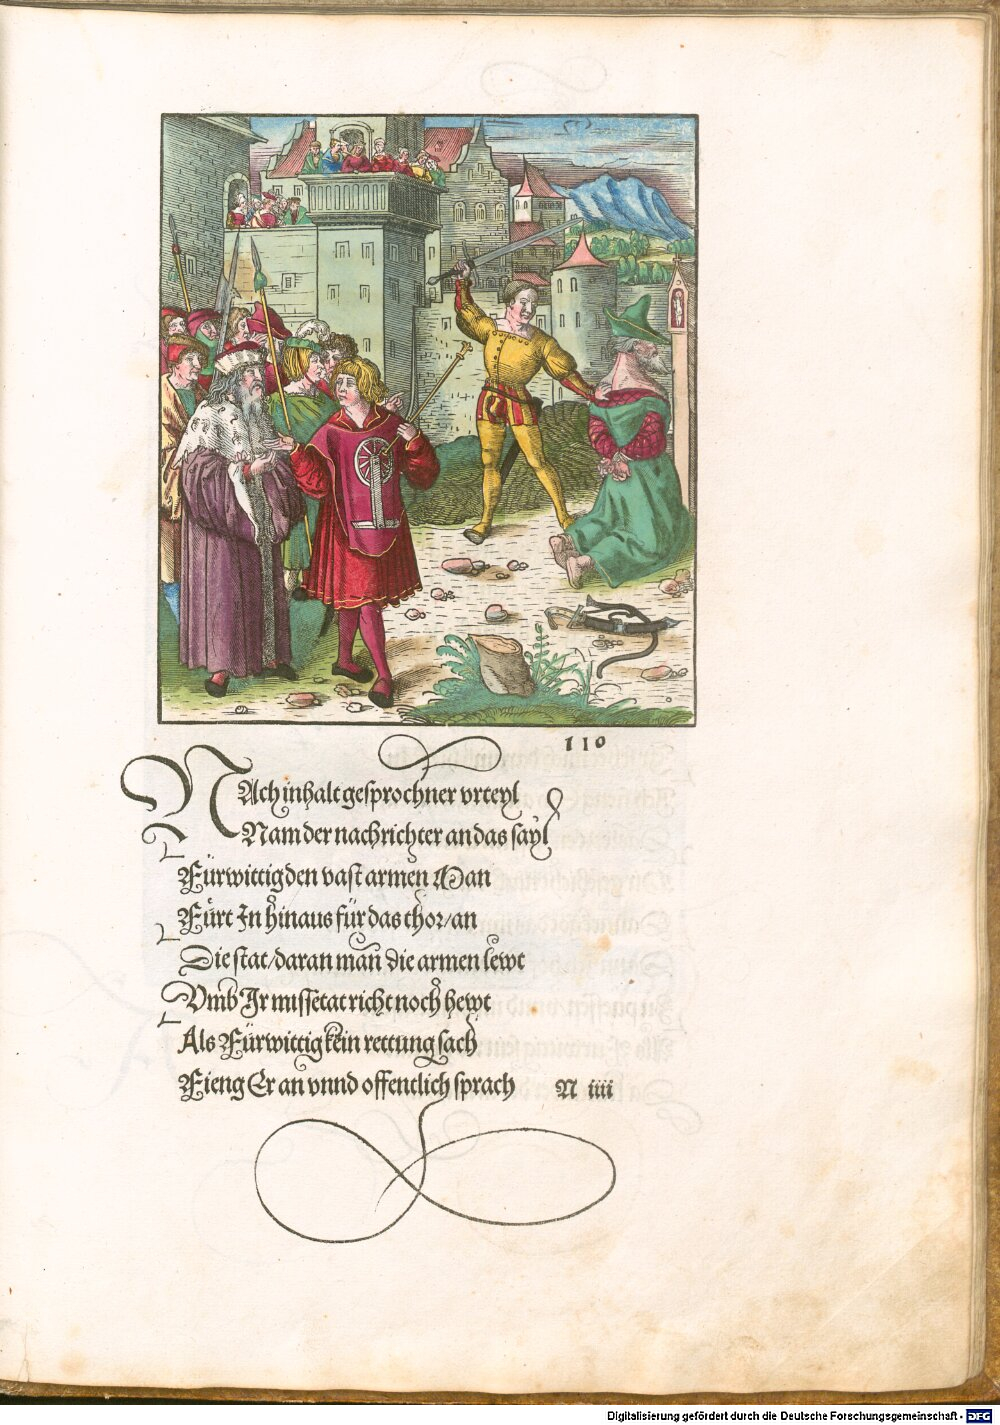 110
NAch inhalt gesprochner vrteyl
Nam der nachrichter an das sayl
Fürwittig den vast armen Man
Fürt In hinaus für das thor/an
Die stat/daran man die armen lewt
Vmb Ir missetat richt noch hewt
Als Fürwittig kein rettung sach
Fieng Er an vnnd offentlich sprach N iiii
Digitalisierung gefördert durch die Deutsche Forschungsgemeinschaft - DFG